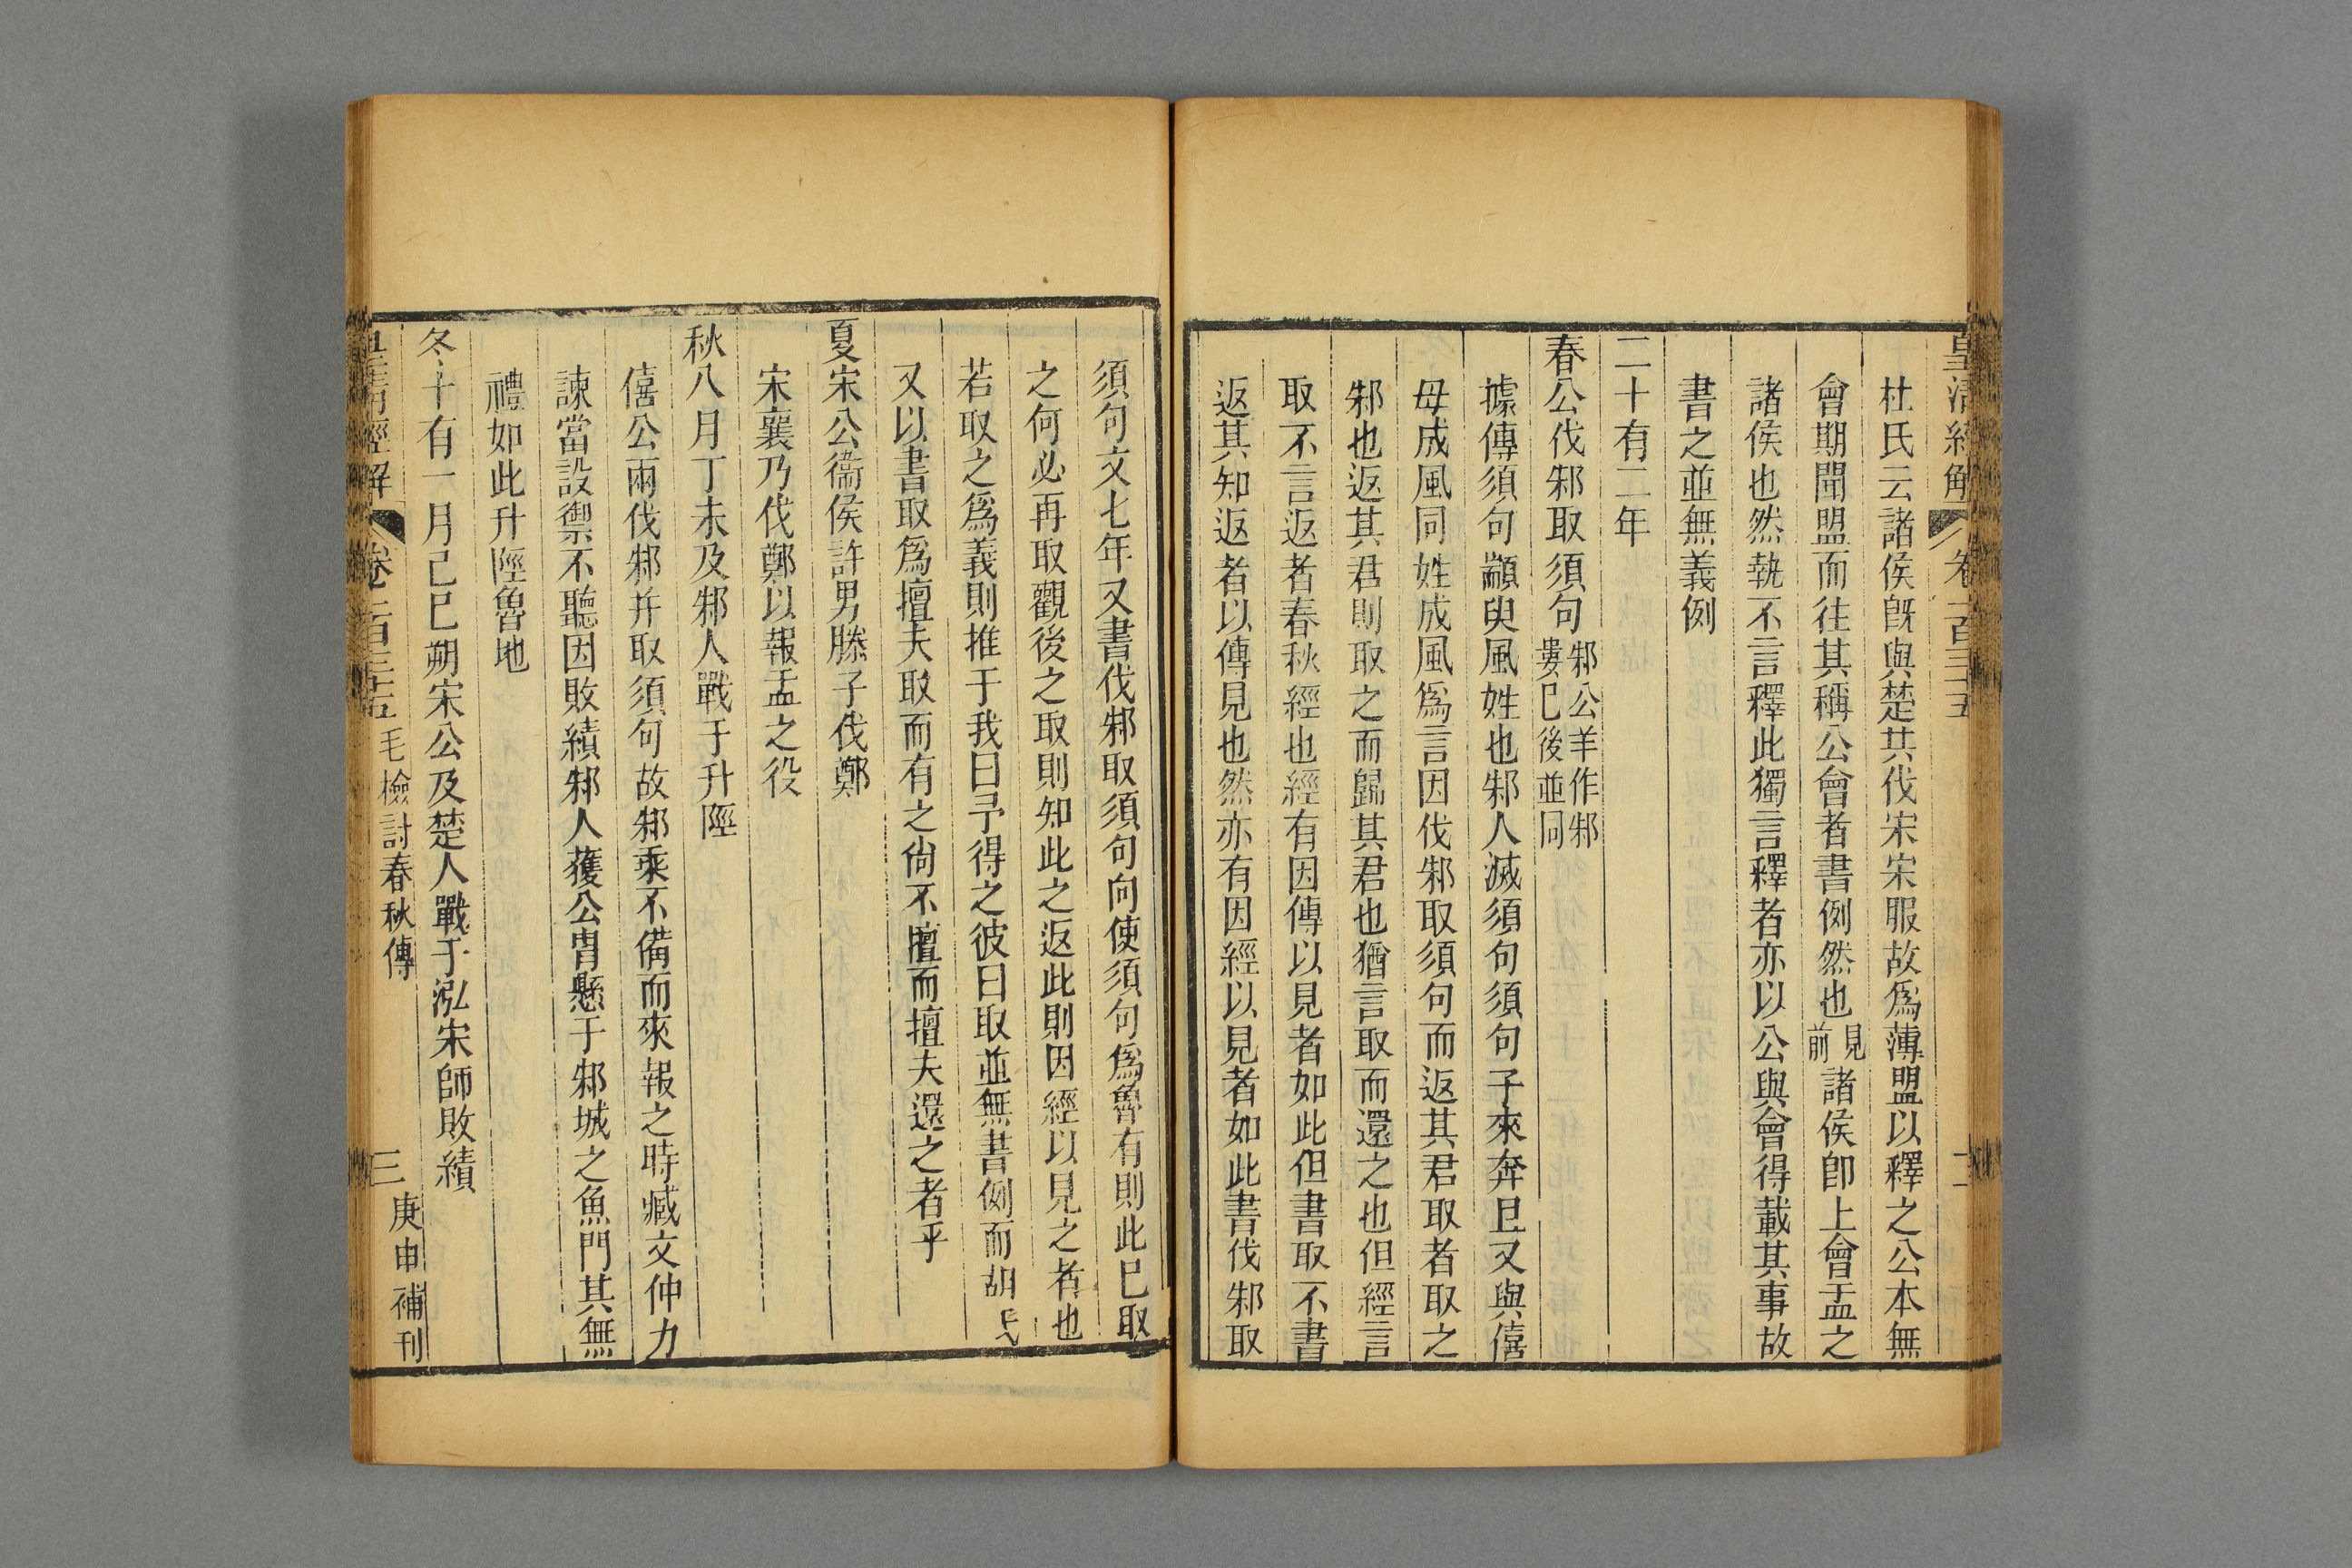 皇清經解 卷一百三十五 二
杜氏云諸侯旣與楚共伐宋宋服故爲薄盟以釋之公本無
會期聞盟而往其稱公會者書例然也見前諸侯卽上會盂之
諸侯也然執不言釋此獨言釋者亦以公與會得載其事故
書之並無義例
二十有二年
春公伐邾取須句邾公羊作邾婁巳後並同
據傳須句顓臾風姓也邾人滅須句須句子來奔且又與僖
母成風同姓成風爲言因伐邾取須句而返其君取者取之
邾也返其君則取之而歸其君也猶言取而還之也但經言
取不言返者春秋經也經有因傳以見者如此但書取不書
返其知返者以傳見也然亦有因經以見者如此書伐邾取
須句文七年又書伐邾取須句向使須句爲魯有則此巳取
之何必再取觀後之取則知此之返此則因經以見之者也
若取之爲義則推于我曰予得之彼曰取並無書例而胡氏
又以書取爲擅夫取而有之尙不擅而擅夫還之者乎
夏宋公衞侯許男滕子伐鄭
宋襄乃伐鄭以報盂之役
秋八月丁未及邾人戰于升陘
僖公兩伐邾幷取須句故邾乘不備而來報之時臧文仲力
諫當設禦不聽因敗績邾人獲公胄懸于邾城之魚門其無
禮如此升陘魯地
冬十有一月己巳朔宋公及楚人戰于泓宋師敗績
皇淸經解 卷一百三十五 毛檢討春秋傳 三 庚申補刊